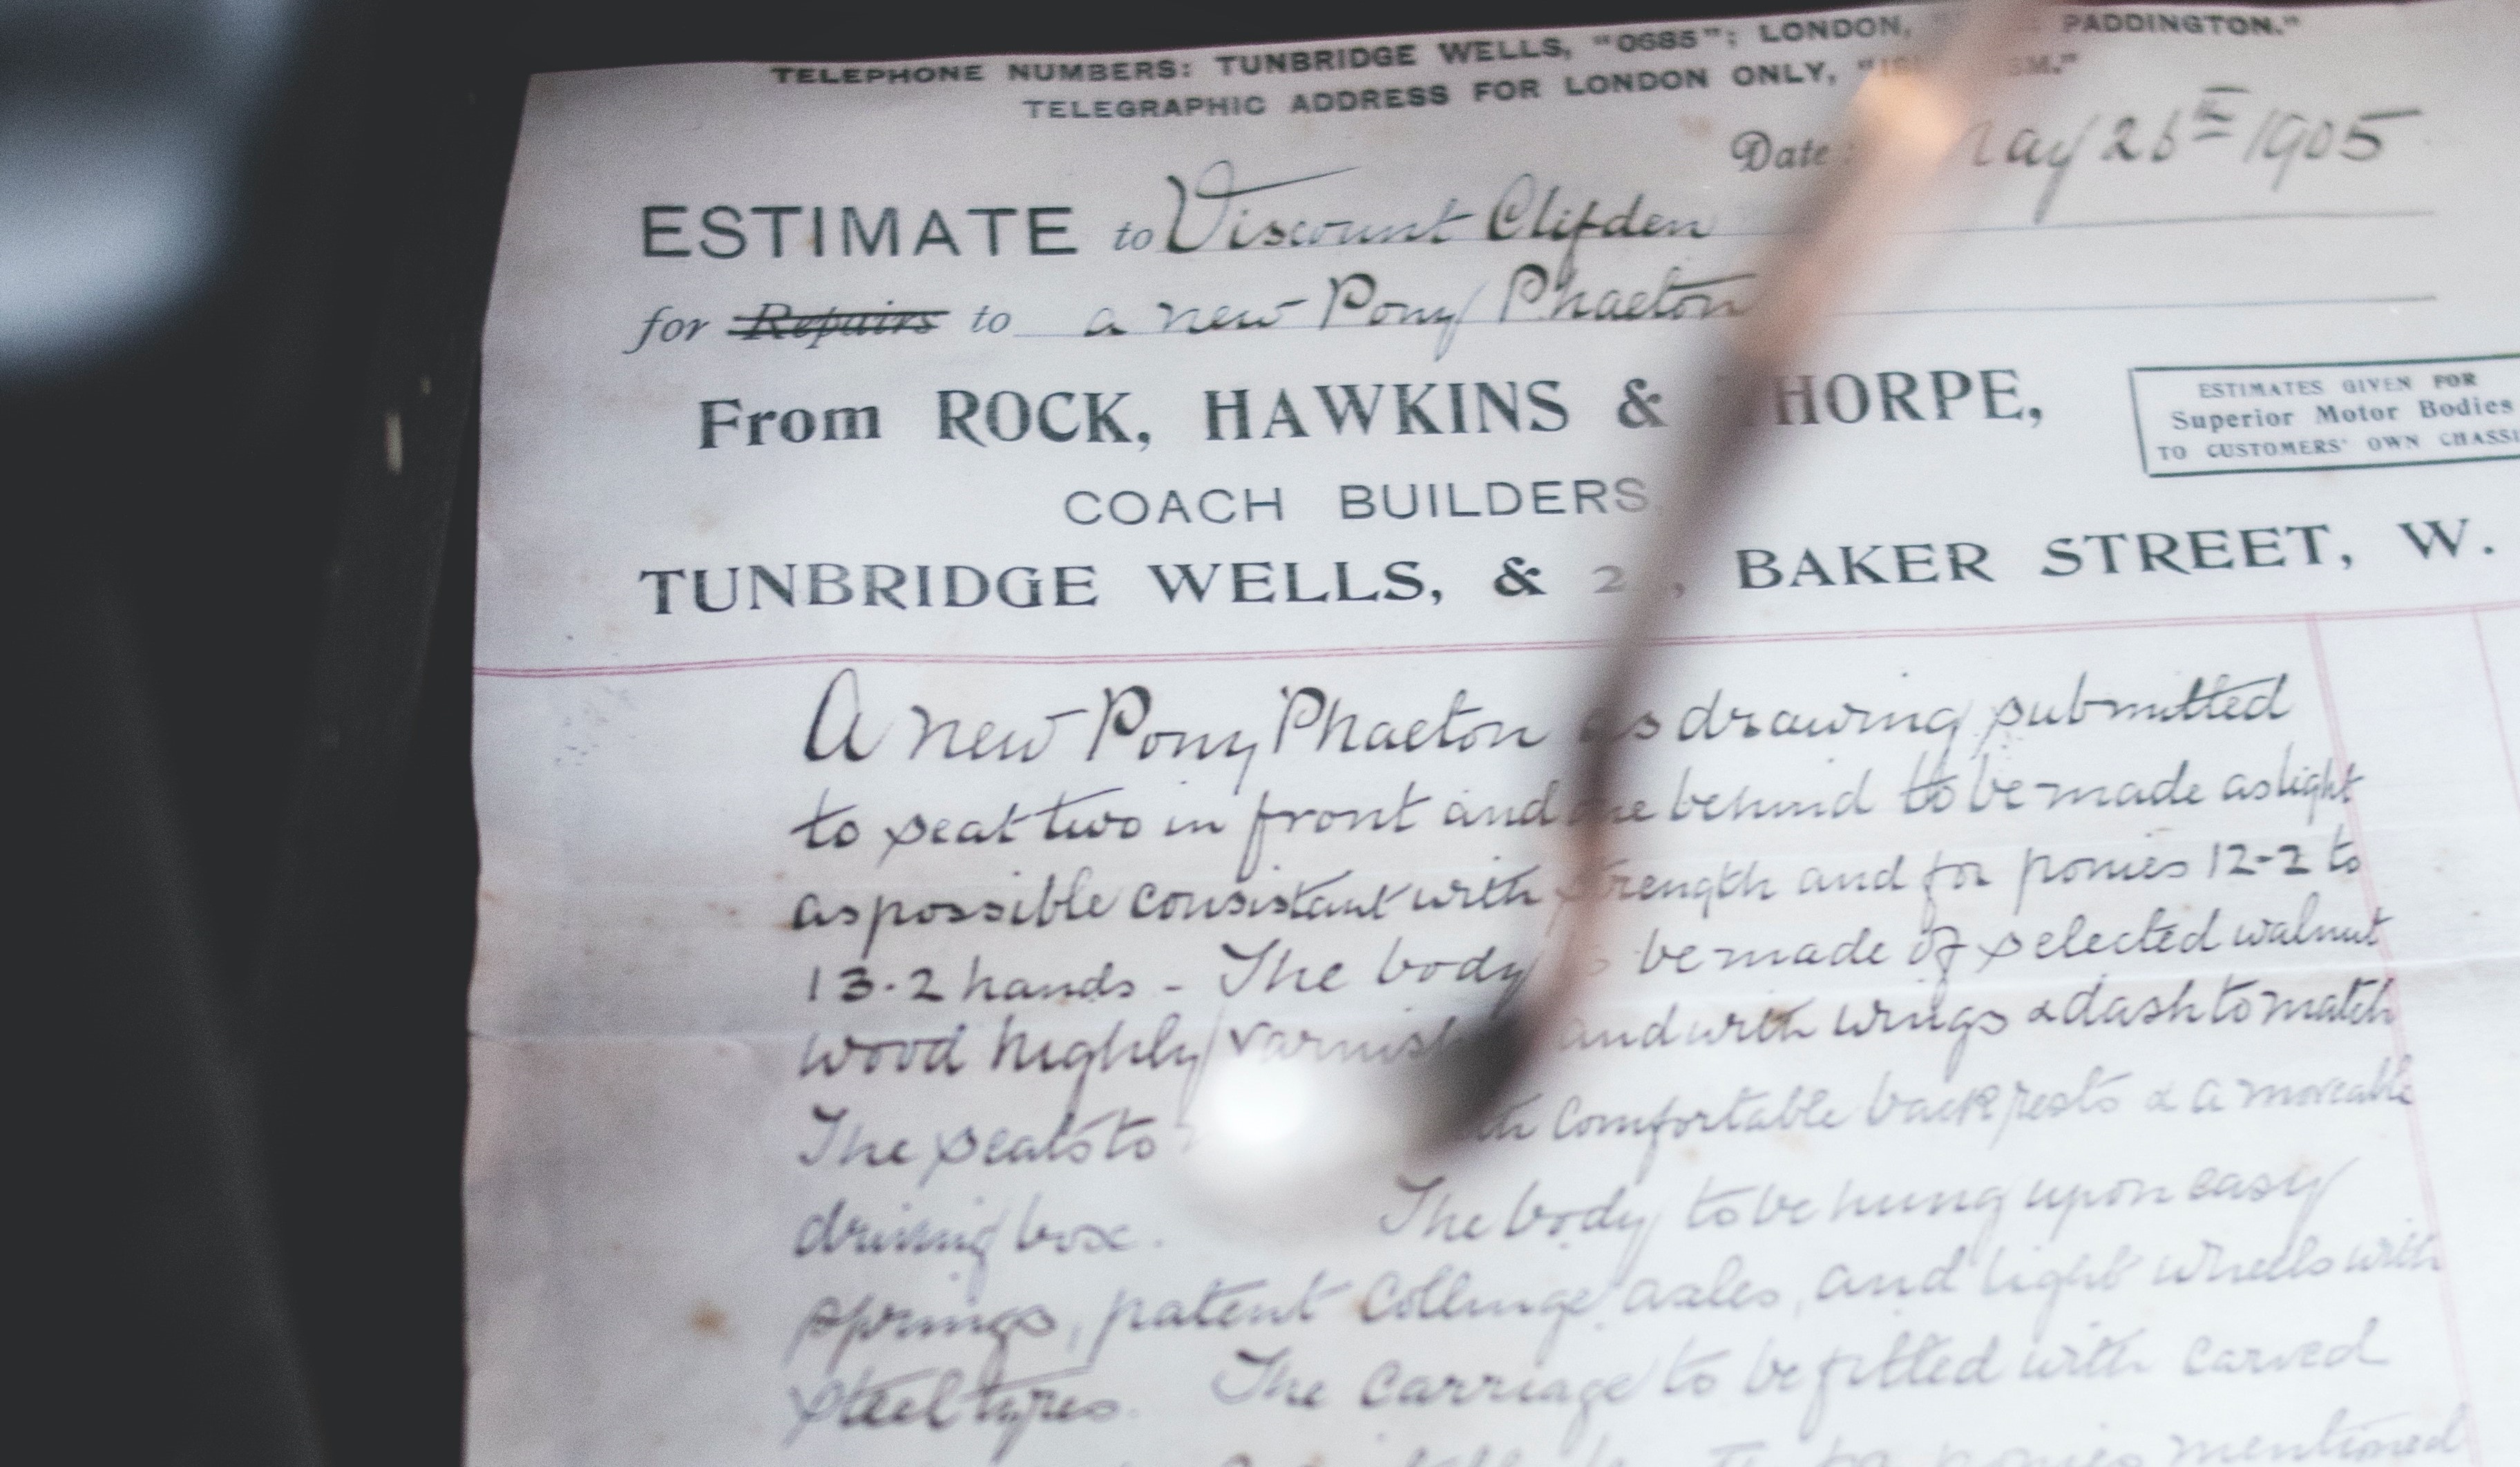 TELEPHONE NUMBERS: TUNBRIDGE WELLS, "0685"; LONDON, PADDINGTON."
TELEGRAPHIC ADDRESS FOR LONDON ONLY,
Date: May 26th 1905
ESTIMATE to Viscount Clifden
for Repairs to a new Pony Phaeton
From ROCK, HAWKINS & THORPE,
ESTIMATES GIVEN FOR
Superior Motor Bodies
TO CUSTOMERS' OWN CHASSI
COACH BUILDERS
TUNBRIDGE WELLS, & BAKER STREET, W.
A new Pony Phaeton as drawing submitted
to seat two in front and one behind to be made as light
as possible consistant with strength and for ponies 12-2 to
13.2 hands - The body to be made of selected walnut
wood highly varnished and with wings & dash to match
The seats to with comfortable back rests & a moveable
driving box. The body to be hung upon easy
springs, patent Collinge axles, and light wheels with
steel tyres. The carriage to be fitted with carved
ponies mentioned